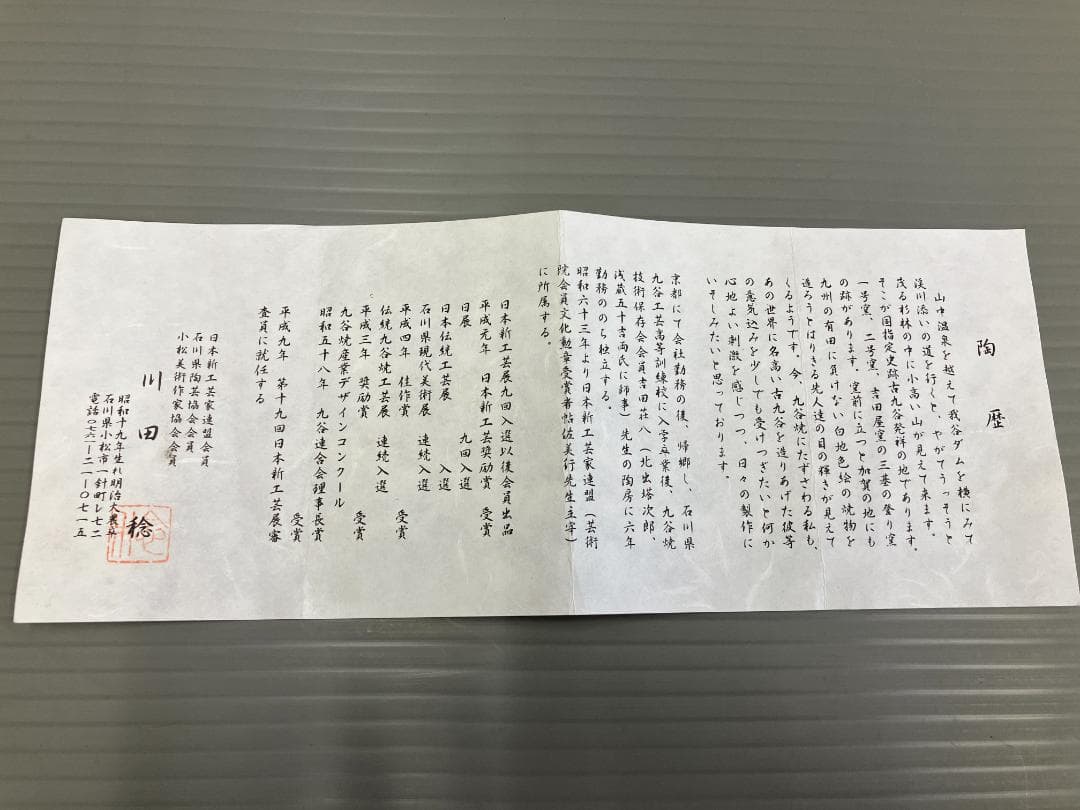 陶歴
山中温泉を越えて我谷ダムを横にみて
渓川添いの道を行くと、やがてうっそうと
茂る杉林の中に小高い山が見えて来ます。
そこが国指定史跡古九谷発祥の地であります。
一号窯、二号窯、吉田屋窯の三基の登り窯
の跡があります。窯前に立つと加賀の地にも
九州の有田に負けない白地色絵の焼物を
造ろうとはりきる先人達の目の輝きが見えて
くるようです。今、九谷焼にたずさわる私も、
あの世界に名高い古九谷を造りあげた彼等
の意気込みを少しでも受けつぎたいと何か
心地よい刺激を感じつつ、日々の製作に
いそしみたいと思っております。
京都にて会社勤務の後、帰郷し、石川県
九谷工芸高等訓練校に入学卒業後、九谷焼
技術保存会会員吉田荘八(北出塔次郎、
浅蔵五十吉両氏に師事)先生の陶房に六年
勤務ののち独立する。
昭和六十三年より日本新工芸家連盟(芸術
院会員文化勲章受賞者帖佐美行先生主宰)
に所属する。
日本新工芸展九回入選以後会員出品
平成元年 日本新工芸奨励賞 受賞
日展 九回入選
日本伝統工芸展 入選
石川県現代美術展 連続入選
平成四年 佳作賞 受賞
伝統九谷焼工芸展 連続入選
平成三年 奨励賞 受賞
九谷焼産業デザインコンクール
昭和五十八年 九谷連合会理事長賞
受賞
平成九年 第十九回日本新工芸展審
査員に就任する
日本新工芸家連盟会員
石川県陶芸協会会員
小松美術作家協会会員
川田稔
昭和十九年生れ明治大農卒
石川県小松市一針町レ七二
電話〇七六一―二一―〇七一五